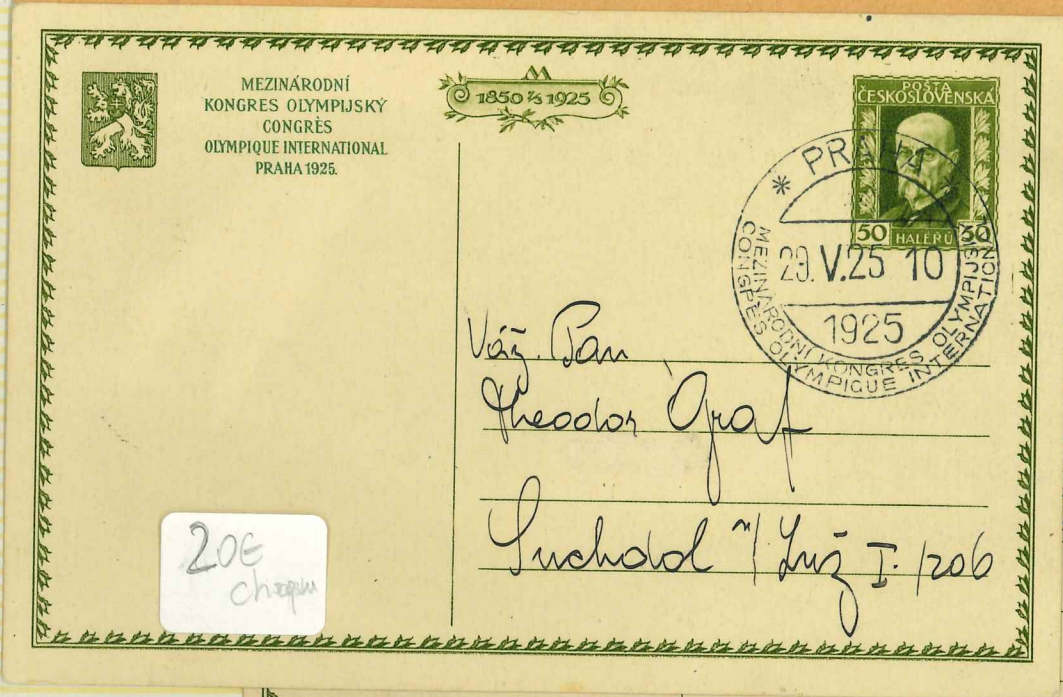 MEZINÁRODNÍ
KONGRES OLYMPIJSKÝ
CONGRÈS
OLYMPIQUE INTERNATIONAL
PRAHA 1925.
1850 7/3 1925
POŠTA
ČESKOSLOVENSKÁ
50 HALÉŘŮ 50
* PRAHA
29.V.25 10
1925
MEZINÁRODNÍ KONGRES OLYMPIJSKÝ
CONGRÈS OLYMPIQUE INTERNATIONAL
Váž. Pan
Theodor Graf
Suchdol n/Luž I./206
20€